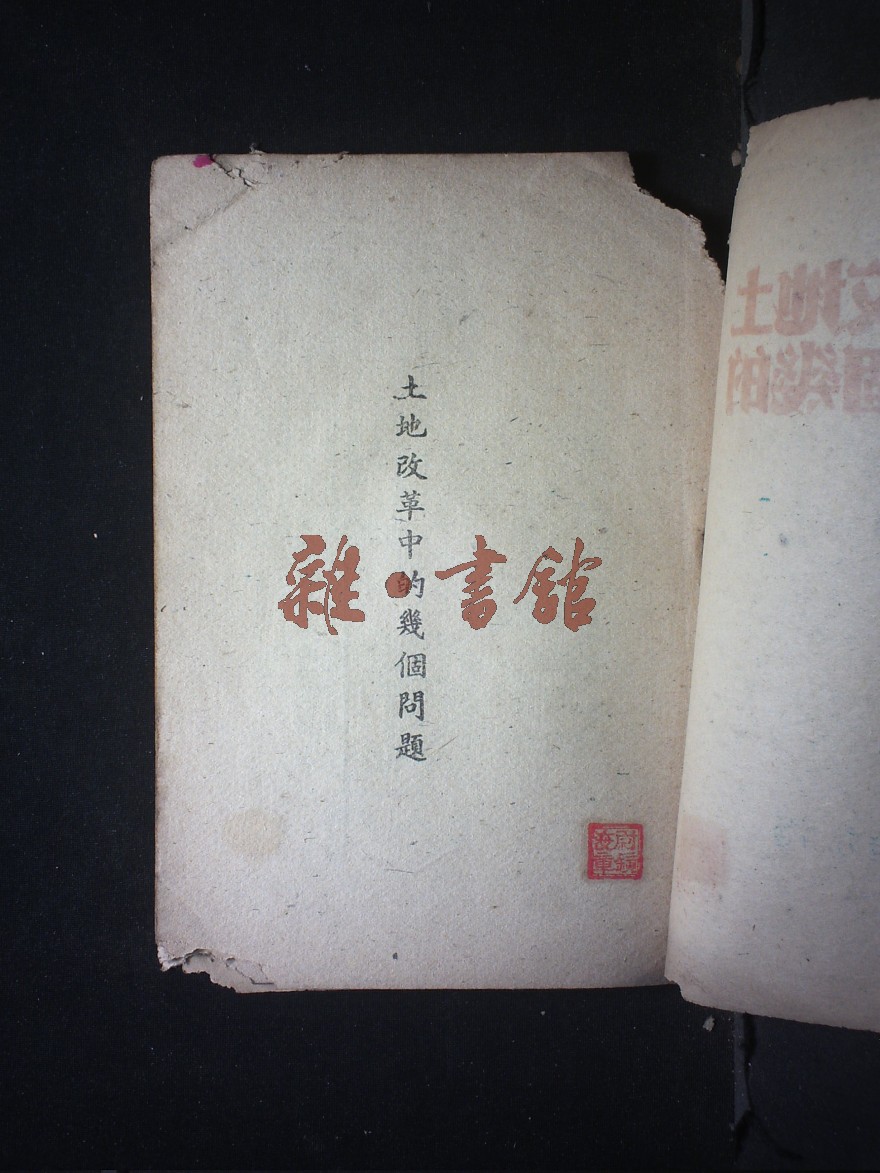 土地改革中的幾個問題
雜·書館